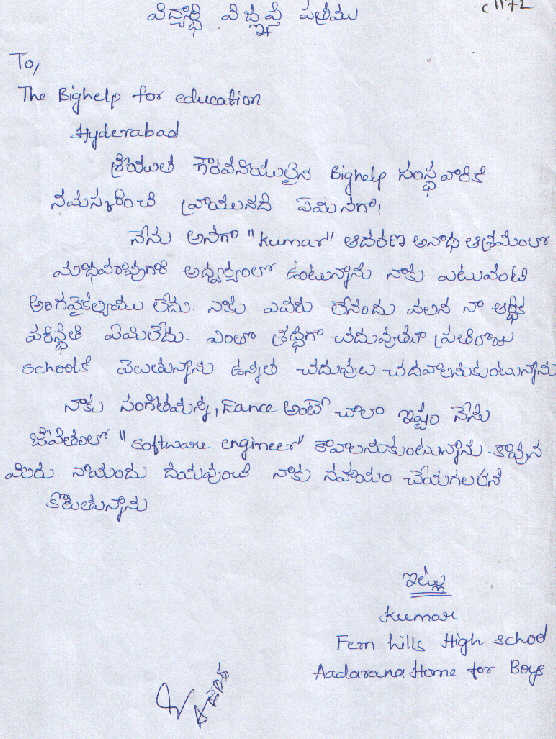 విద్యార్థి విజ్ఞప్తి పత్రము
C 1172
To,
The Bighelp for education
Hyderabad
శ్రీయుత గౌరవనియులైన Bighelp సంస్థవారికి
నమస్కరించి వ్రాయునది ఏమనగా!
నేను అనగా "kumar" ఆదరణ అనాధ ఆశ్రమంలో
అధ్యక్షంలో ఉంటున్నాను నాకు ఎటువంటి
అంగవైకల్యము లేదు. నాకు ఎవరు లేనందు వలన నా ఆర్థిక
పరిస్థితి ఏమిలేదు. ఎంతో శ్రద్ధగా చదువుతూ ప్రతిరోజు
schoolకి వెలుతున్నాను ఉన్నత చదువులు చదవాలనుకుంటున్నాను
నాకు సంగీతమన్న, Dance అంటే చాలా ఇష్టం నేను
జీవితంలో "software engineer" కావాలనుకుంటున్నాను. కావున
మీరు నాయందు దయవుంచి నాకు సహాయం చేయగలరని
కోరుతున్నాను
ఇట్లు
kumar
Fern hills High school
Aadarana Home for Boys